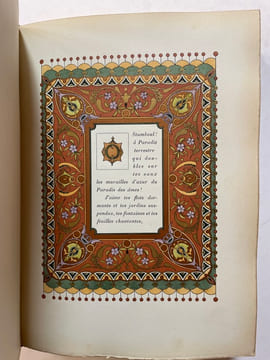 Stamboul!
ô Paradis
terrestre
qui dou-
bles sur
tes eaux
les murailles d'azur du
Paradis des âmes!
J'aime tes flots dor-
mants et tes jardins sus-
pendus, tes fontaines et tes
feuilles chantantes,